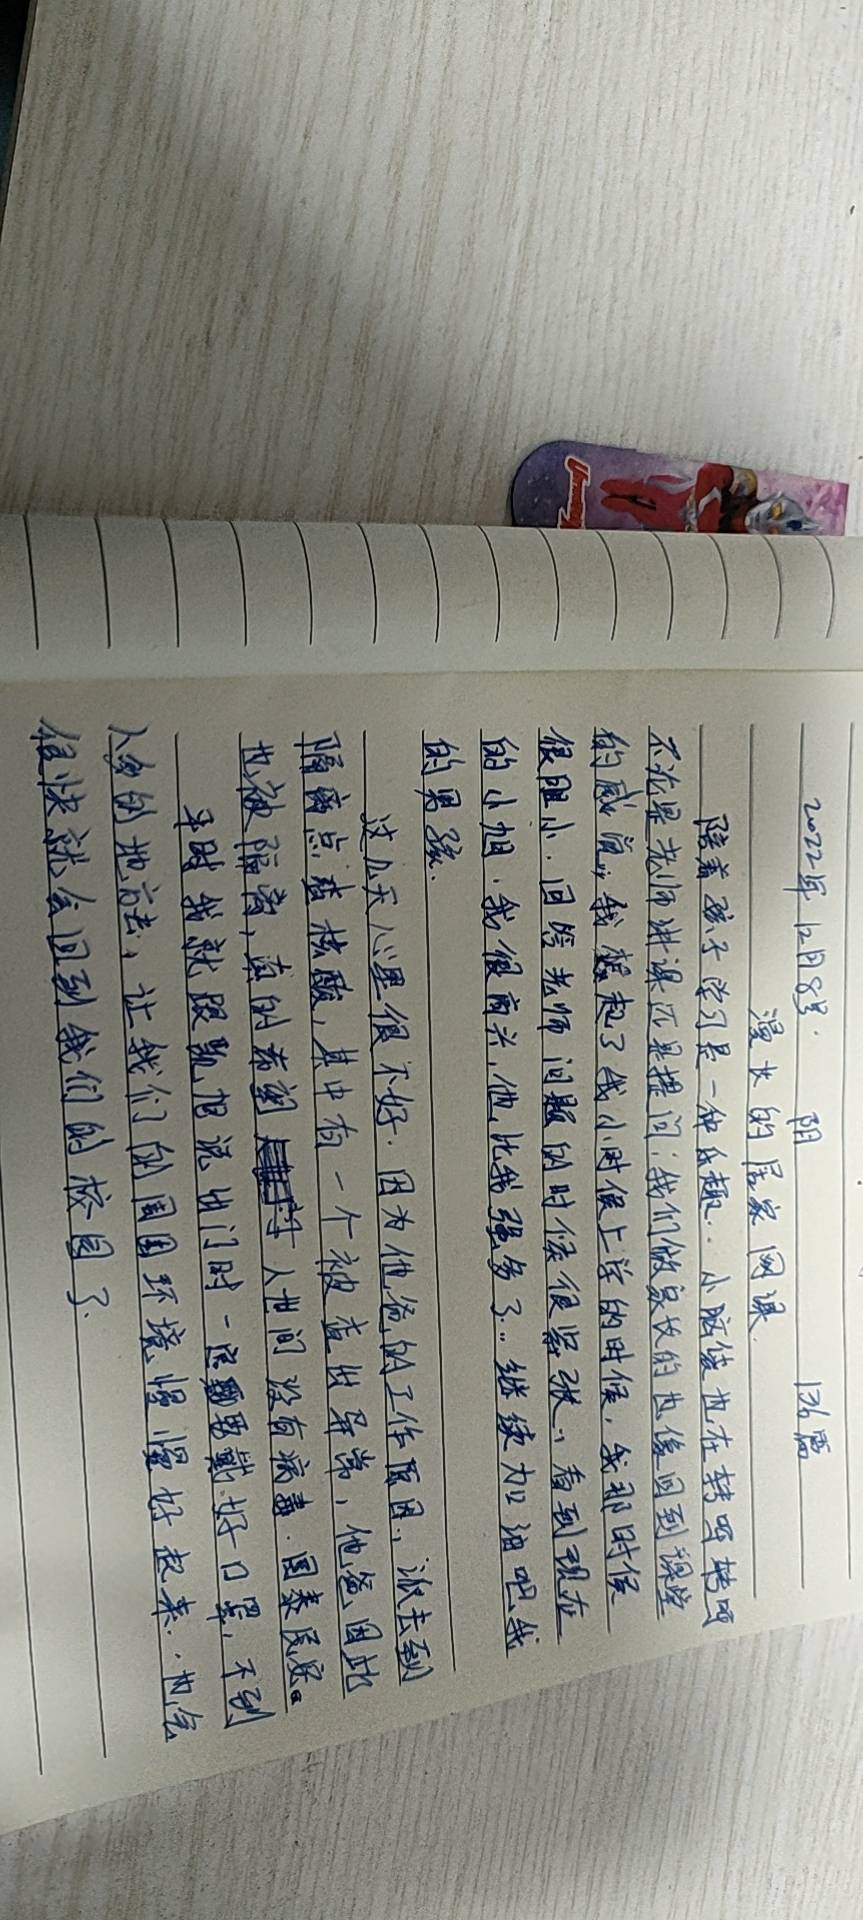 2022年12月8号. 阴
漫长的居家网课.
陪着孩子学习是一种乐趣.. 小脑筋也在转呀转呀
不光是老师讲课还是提问,我们做家长的也像回到课堂
的感觉,,我想起了我小时候上学的时候,我那时候
很胆小.回答老师问题的时候很紧张,,看到现在
的小旭.我很高兴,他比我强多了..继续加油吧我
的男孩.
这几天心里很不好.因为他爸的工作原因,,派去到
隔离点查核酸,其中有一个被查出异常,他爸因此
也被隔离,真的希望人世间没有病毒.国泰民安。
平时我就跟凯旭说出门时一定要戴好口罩,不到
人多的地方去,让我们的周围环境慢慢好起来..也会
很快就会回到我们的校园了.